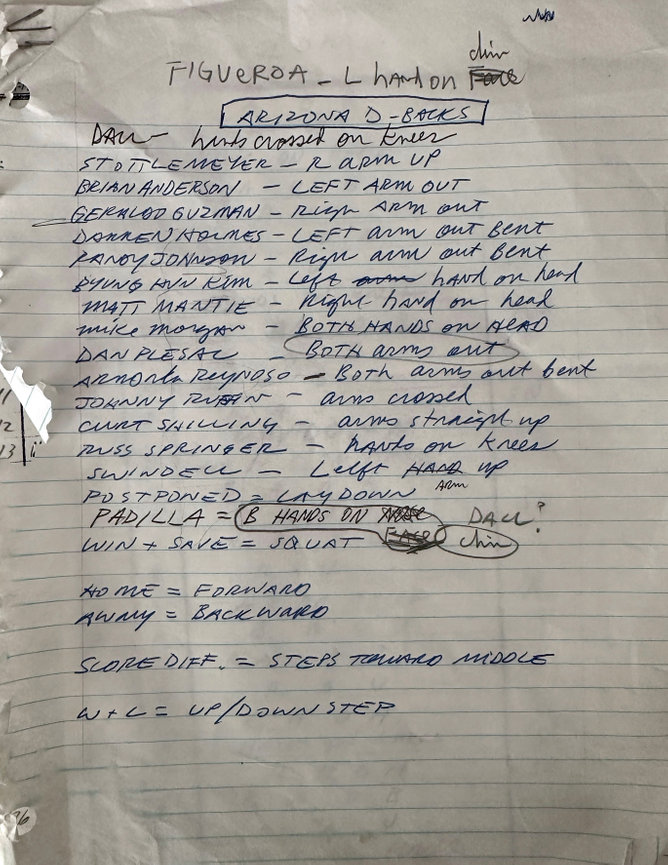 FIGUEROA - L hand on Face chin
ARIZONA D-BACKS
DAAL - hands crossed on knees
STOTTLEMEYER - R ARM UP
BRIAN ANDERSON - LEFT ARM OUT
GERALOD GUZMAN - Righ ARM out
DARREN HOLMES - LEFT arm out Bent
RANDY JOHNSON - Righ arm out Bent
BYUNG HVN Kim - Left arm hand on head
MATT MANTIE - Right hand on head
mike morgan - BOTH HANDS ON HEAD
DAN PLESAC - BOTH arms out
Armonda Reynoso - Both arms out bent
JOHNNY RUFFIN - arms crossed
CURT SHILLING - arms straight up
RUSS SPRINGER - hands on knees
SWINDELL - Lelft HAND ARM up
POSTPONED = LAY DOWN
PADILLA = B HANDS ON chin DAAL?
WIN + SAVE = SQUAT
HOME = FORWARD
AWAY = BACKWARD
SCORE DIFF. = STEPS TOWARD MIDDLE
W + L = UP/DOWN STEP
11
12
13
26